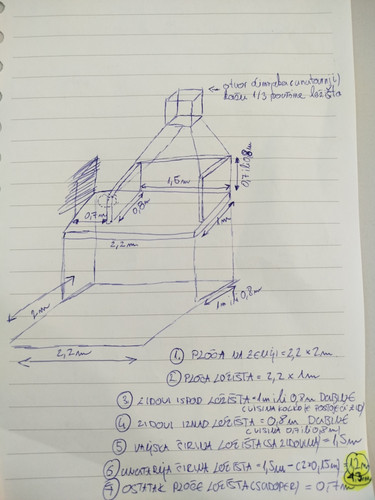 otvor dimnjaka (unutarnji)
kači 1/3 površine ložišta
1,5m
0,7 ili 0,8m
0,7m
0,8m
1m
2,2m
2m
1m ili 0,8m
2,2m
1 PLOČA NA ZEMLJI = 2,2 x 2m
2 PLOČA LOŽIŠTA = 2,2 x 1m
3 ZIDOVI ISPOD LOŽIŠTA = 1m ili 0,8m DUBINE
(VISINA KOLIKO JE
4 ZIDOVI IZNAD LOŽIŠTA = 0,8m DUBINE
(VISINA 0,7 ili 0,8m)
5 VANJSKA ŠIRINA LOŽIŠTA (SA ZIDOVIMA) = 1,5m
6 UNUTARNJA ŠIRINA LOŽIŠTA = 1,5m - (2x0,15m) = 1,2m
7 OSTATAK PLOČE LOŽIŠTA (SUDOPER) = 0,7m